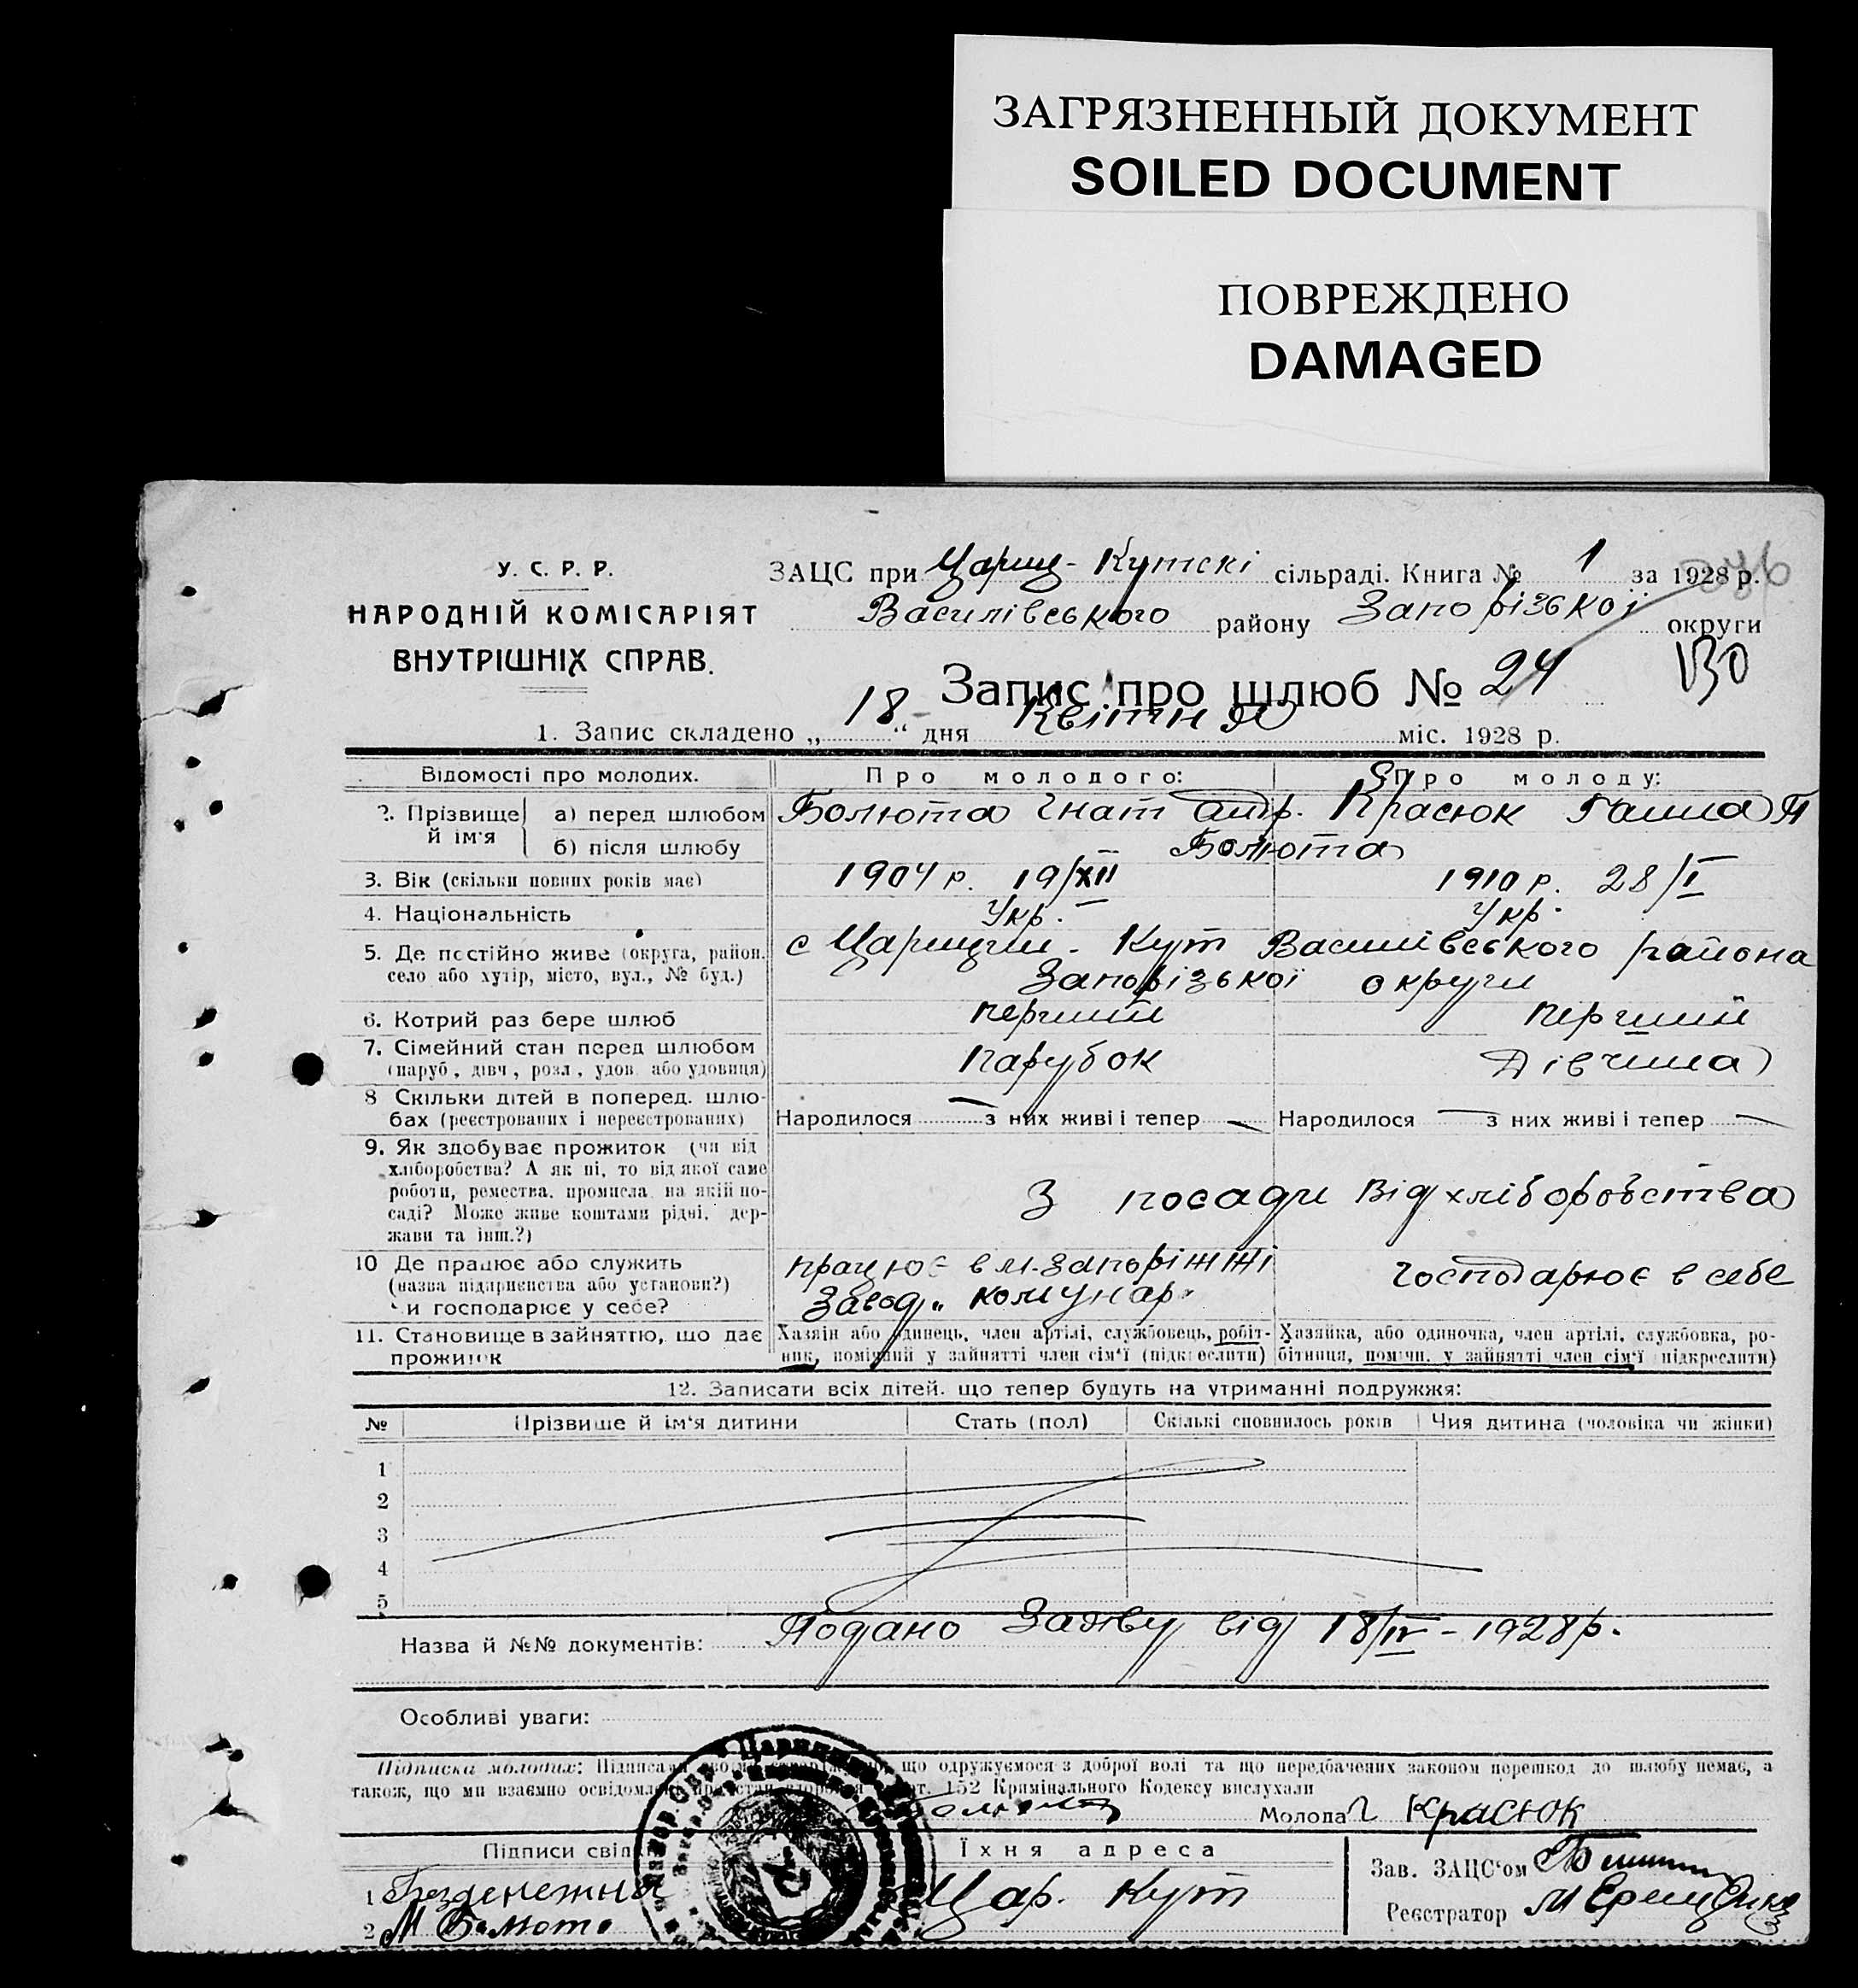 ЗАГРЯЗНЕННЫЙ ДОКУМЕНТ
SOILED DOCUMENT
ПОВРЕЖДЕНО
DAMAGED
У. С. Р. Р.
НАРОДНІЙ КОМІСАРІЯТ
ВНУТРІШНІХ СПРАВ.
ЗАЦС при Цариц-Кутскі сільраді. Книга № 1 за 1928 р.
Василівського району Запорізької округи
Запис про шлюб № 24
130
1. Запис складено „18“ дня Квітня міс. 1928 р.
Відомості про молодих. Про молодого: Про молоду:
2. Прізвище й ім'я а) перед шлюбом Болюта Гнат Красюк Ганна П
б) після шлюбу Болюта
3. Вік (скільки повних років має) 1904 р. 19/XII 1910 р. 28/I
4. Національність Укр. Укр.
5. Де постійно живе (округа, район, село або хутір, місто, вул., № буд.) с Царицин-Кут Василівського района
Запорізької округи
6. Котрий раз бере шлюб перший перший
7. Сімейний стан перед шлюбом (паруб., дівч., розл., удов. або удовиця) Парубок Дівчина
8 Скільки дітей в поперед. шлюбах (реєстрованих і нереєстрованих) Народилося — з них живі і тепер — Народилося — з них живі і тепер —
9. Як здобуває прожиток (чи від
хліборобства? А як ні, то від якої саме
роботи, ремества, промисла, на якій по-
саді? Може живе коштами рідні, дер-
жави та інш.?)
З посади Від хліборобства
10 Де працює або служить
(назва підприємства або установи?)
чи господарює у себе?
працює в м. Запоріжжі
Завод „Комунар"
господарює в себе
11. Становище в зайняттю, що дає
прожиток
Хазяін або одинець, член артілі, службовець, робіт-
ник, помічний у зайнятті член сім'ї (підкреслити)
Хазяйка, або одиночка, член артілі, службовка, ро-
бітниця, помічн. у зайнятті член сім'ї підкреслити)
12. Записати всіх дітей, що тепер будуть на утриманні подружжя:
№ Прізвище й ім'я дитини Стать (пол) Скількі сповнилось років Чия дитина (чоловіка чи жінки)
1
2
3
4
5
Назва й №№ документів: Подано Заяву від 18/IV - 1928 р.
Особливі уваги:
Підписка молодих: що одружуємося з доброї волі та що передбачених законом перешкод до шлюбу немає, а
також, що ми взаємно освідомлені 152 Кримінального Кодексу вислухали
Молода Г Красюк
Підписи Їхня адреса Зав. ЗАЦС'ом
1 Безденежный Цар. Кут
2 М Болюта
Реєстратор